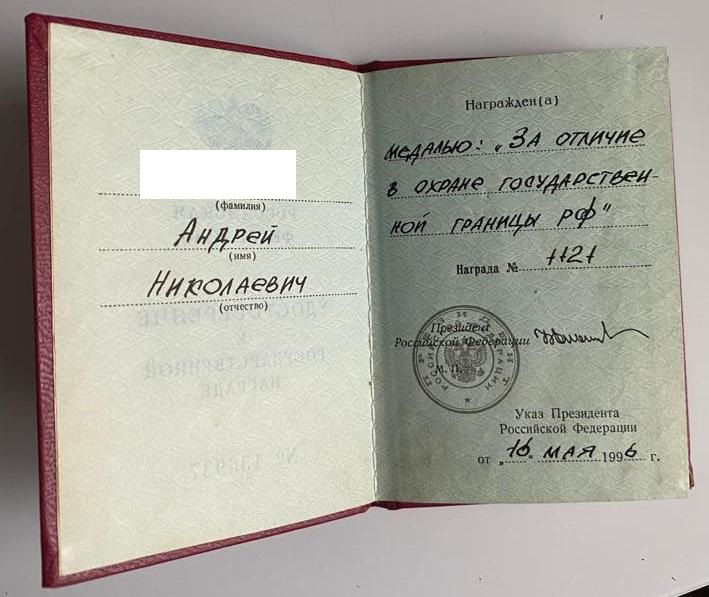 (фамилия)
Андрей
(имя)
Николаевич
(отчество)
Награжден(а)
медалью: „За отличие
в охране государствен-
ной границы РФ"
Награда № 1121
Президент
Российской Федерации
М. П.
Указ Президента
Российской Федерации
от „16„ мая 1996 г.